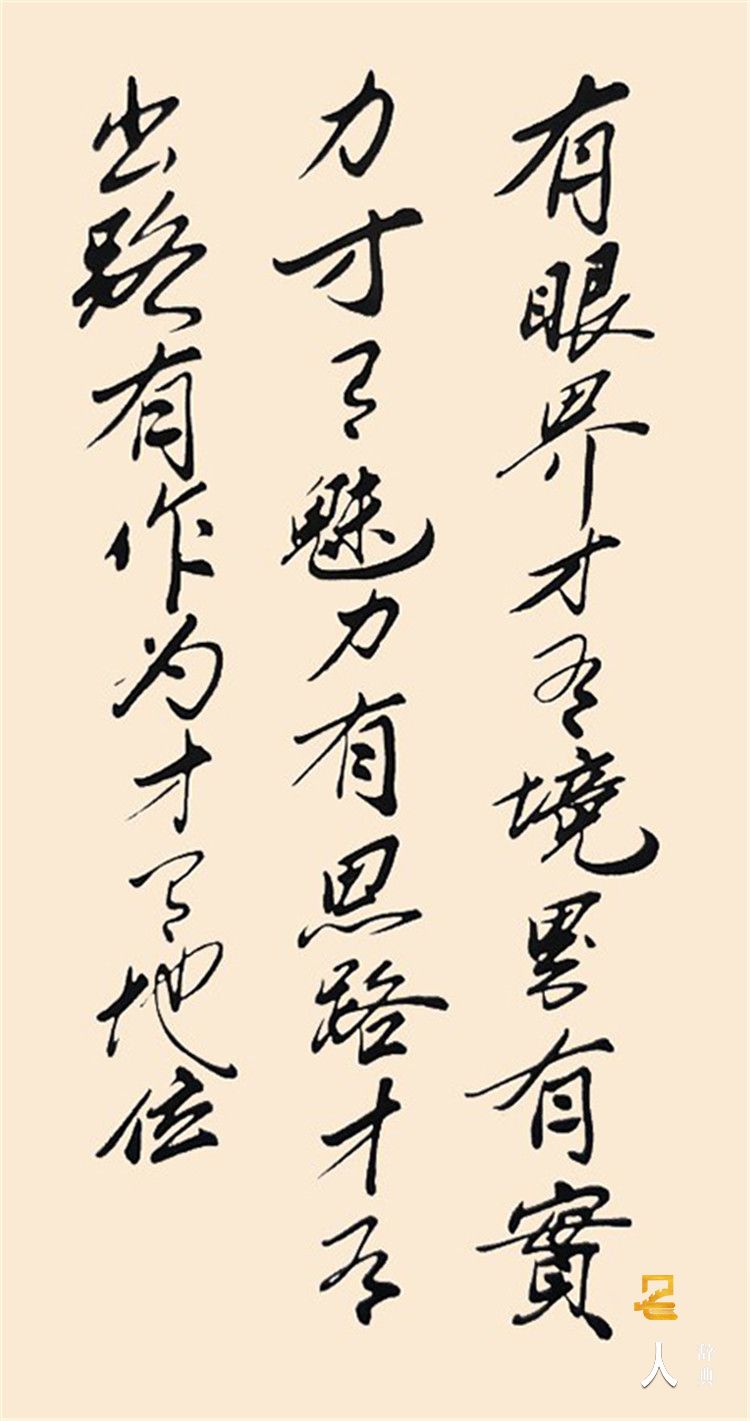 有眼界才有境界有實
力才有魅力有思路才有
出路有作为才有地位
人
辞典